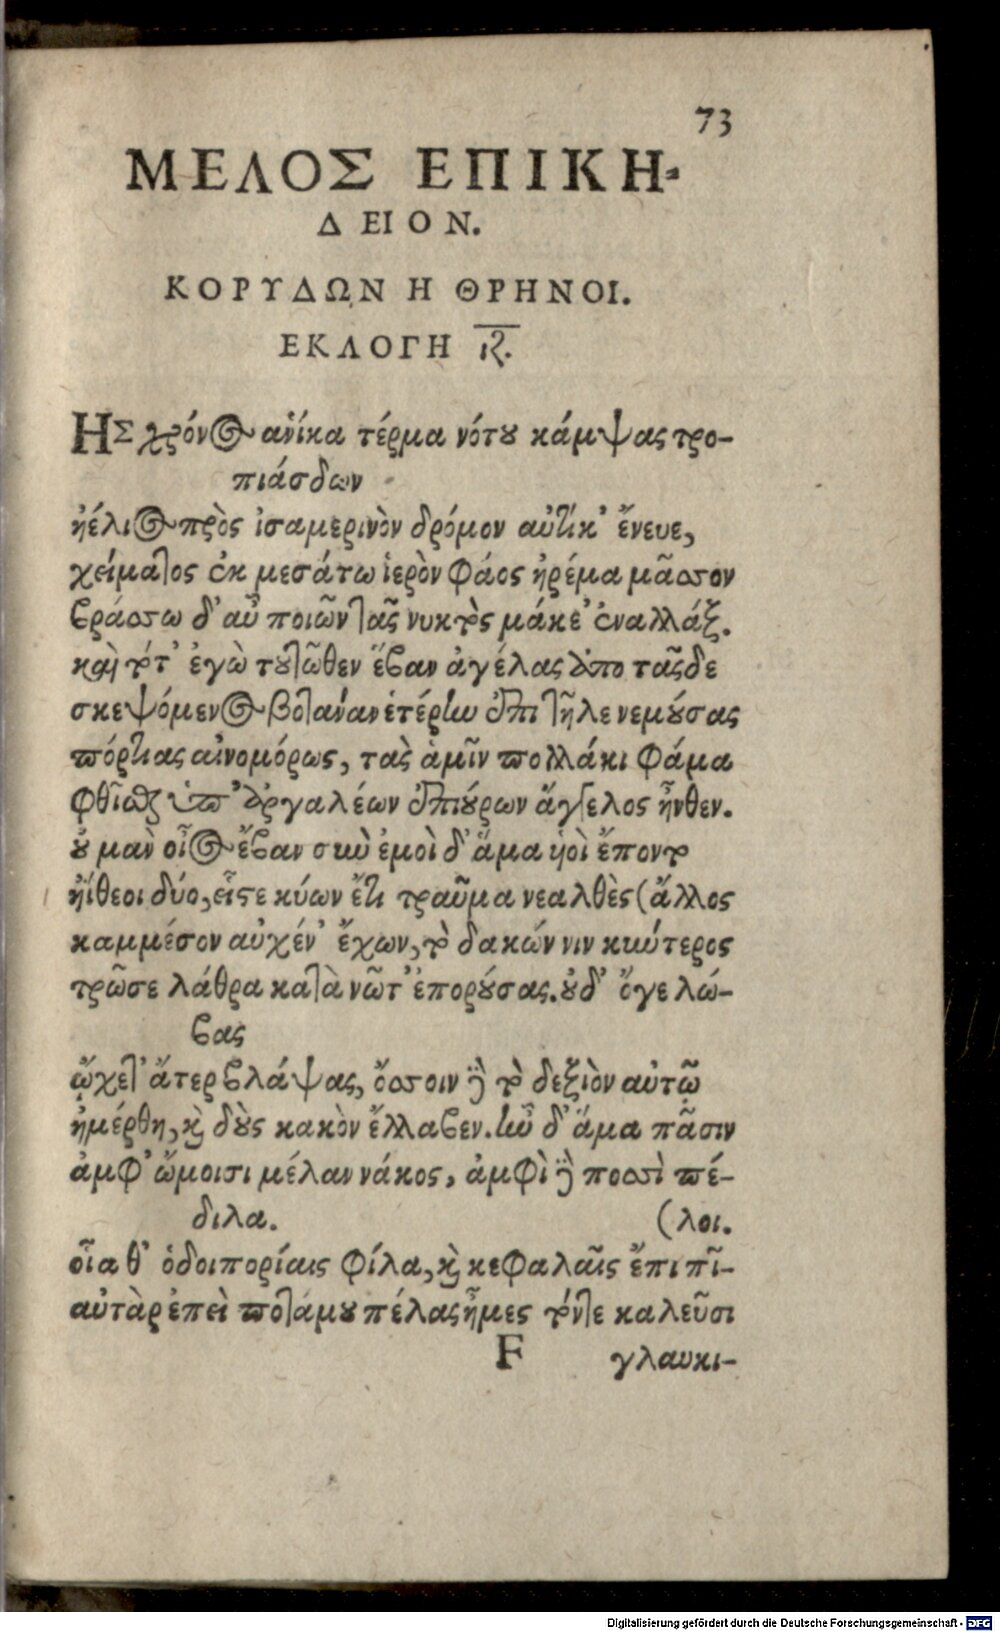 73
ΜΕΛΟΣ ΕΠΙΚΗ-
ΔΕΙΟΝ.
ΚΟΡΥΔΩΝ Η ΘΡΗΝΟΙ.
ΕΚΛΟΓΗ ιϛ.
ΗΣ χρόνος ἁνίκα τέρμα νότου κάμψας τρο-
πιάσδων
ἠέλιος πρὸς ἰσαμερινὸν δρόμον αὐτίκ' ἔνευε,
χείματος ἐκ μεσάτω ἱερὸν φάος ἠρέμα μᾶσσον
βράσσω δ' αὖ ποιῶν τᾶς νυκτὸς μάκε' ἐναλλάξ.
καὶ τότ' ἐγὼ τουτῶθεν ἔβαν ἀγέλας ὑπὸ τᾶσδε
σκεψόμενος βοτάναν ἑτέρην ἐπὶ τῆλε νεμούσας
πόρτιας αἰνομόρως, τὰς ἁμῖν πολλάκι φάμα
φθῖσθαι ὑπ' ἀργαλέων ἐπιούρων ἄγγελος ἦνθεν.
οὐ μὰν οἶος ἔβαν σὺν ἐμοὶ δ' ἅμα τοὶ ἕποντο
ἠΐθεοι δύο, εἷς τε κύων ἔτι τραῦμα νεαλθὲς (ἄλλος
καμμέσον αὐχέν' ἔχων, τὸ δακών νιν κωύτερος
τρῶσε λάθρα κατὰ νῶτ' ἐπορούσας. οὐδ' ὅγε λώ-
βας
ᾤχετ' ἄτερ βλάψας, ὄσσοιν γὰρ τὸ δεξιὸν αὐτῶ
ἠμέρθη, καὶ δοὺς κακὸν ἔλλαβεν. ἦν δ' ἅμα πᾶσιν
ἀμφ' ὤμοισι μέλαν νάκος, ἀμφὶ γὰρ ποσσὶ πέ-
διλα. (λοι.
οἷα θ' ὁδοιπορίαις φίλα, καὶ κεφαλαῖς ἔπι πῖ-
αὐτὰρ ἐπεὶ ποτάμου πέλας ἦμες τόν τε καλεῦσι
F γλαυκι-
Digitalisierung gefördert durch die Deutsche Forschungsgemeinschaft - DFG